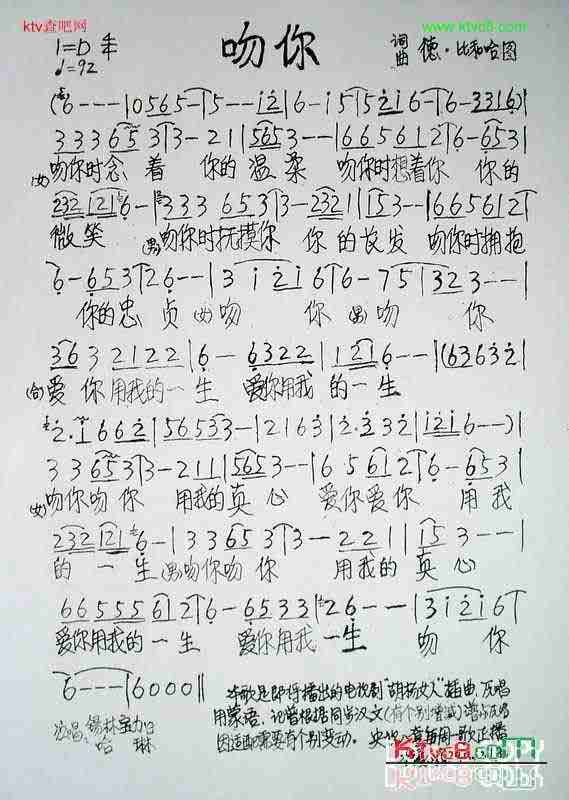 ktv查吧网
www.ktvc8.com
1=D 4/4
♩=92
吻你
词曲 德·比和哈图
(6---|0565-|5---i2|6-i5|52i6-|6-3316)|
33365 3|3-21|5653--|665612|6-653|
(女)吻你时念着 你的温柔 吻你时想着你 你的
232 121 6-|333 653|3-2321|153--|665612|
微笑 (男)吻你时抚摸你 你的长发 吻你时拥抱
6-653|26--|3 i 2i6|6-75|323--|
你的忠贞 (女)吻 你 (男)吻 你
36 3 2122|6-6322|1216--|(63632|
(合)爱你用我的一生 爱你用我的一生
2·i662|565533-|2163|2·332|i2i6--)|
33653|3-211|5653--|65612|6-653|
(女)吻你吻你 用我的真心 爱你爱你 用我
232 121 6-|33653|3--221|153--|
的一生 (男)吻你吻你 用我的真心
66555612|6-6533|26---|3i2i6|
爱你用我的一生 爱你用我一生 吻 你
6---|6000‖
本歌是即将播出的电视剧"胡杨女人"插曲,原唱
用蒙语,记谱根据同步汉文(有个别增减)谱与原唱
演唱:锡林宝力日
哈 琳
Ktvc8